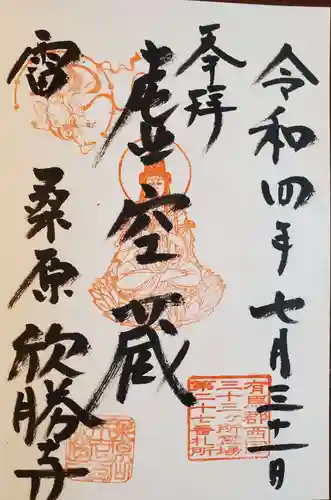 令和四年七月三十一日
奉拝
虚空蔵
雷
桑原欣勝寺
有馬郡西国
三十三ヶ所霊場
第二十七番札所